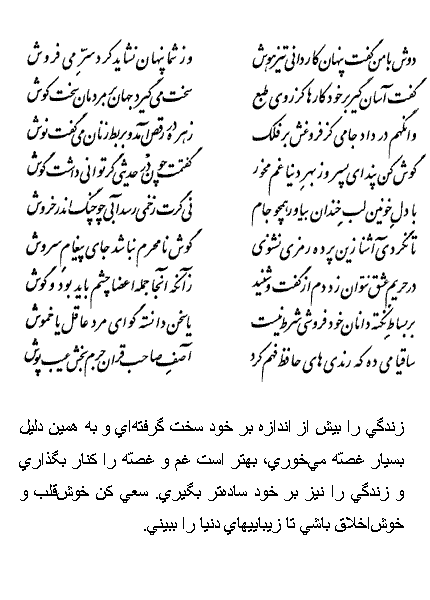 دوش با من گفت پنهان کاردانی تیزهوش وز شما پنهان نشاید کرد سرّ می فروش
گفت آسان گیر بر خود کارها کز روی طبع سخت می‌گیرد جهان بر مردمان سخت کوش
وانگهم در داد جامی کز فروغش بر فلک زهره در رقص آمد و بربط زنان می‌گفت نوش
گوش کن پند ای پسر وز بهر دنیا غم مخور گفتمت چون در حدیثی گر توانی داشت گوش
با دل خونین لب خندان بیاور همچو جام نی گرت زخمی رسد آیی چو چنگ اندر خروش
تا نگردی آشنا زین پرده رمزی نشنوی گوش نامحرم نباشد جای پیغام سروش
در حریم عشق نتوان زد دم از گفت و شنید زآنکه آنجا جمله اعضا چشم باید بود و گوش
بر بساط نکته دانان خودفروشی شرط نیست یا سخن دانسته گو ای مرد عاقل یا خموش
ساقیا می ده که رندی های حافظ فهم کرد آصف صاحب قران جرم بخش عیب پوش
زندگي را بيش از اندازه بر خود سخت گرفته‌اي و به همين دليل
بسيار غصّه مي‌خوري، بهتر است غم و غصّه را كنار بگذاري
و زندگي را نيز بر خود ساده‌تر بگيري. سعي كن خوش‌قلب و
خوش‌اخلاق باشي تا زيباييهاي دنيا را ببيني.